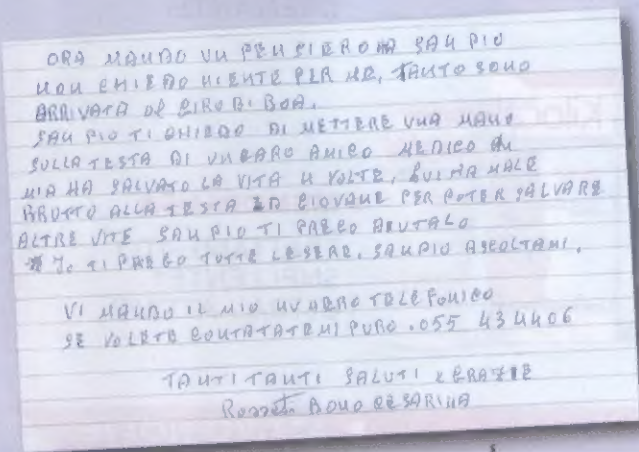 ORA MANDO UN PENSIERO A SAN PIO
NON CHIEDO NIENTE PER ME, TANTO SONO
ARRIVATA AL GIRO DI BOA.
SAN PIO TI CHIEDO DI METTERE UNA MANO
SULLA TESTA DI UN CARO AMICO MEDICO CHE
MIA HA SALVATO LA VITA 4 VOLTE, LUI HA MALE
BRUTTO ALLA TESTA ED GIOVANE PER POTER SALVARE
ALTRE VITE SAN PIO TI PREGO AIUTALO
IO TI PREGO TUTTE LE SERE, SAN PIO ASCOLTAMI.
VI MANDO IL MIO NUMERO TELEFONICO
SE VOLETE CONTATATEMI PURO. 055 434406
TANTI TANTI SALUTI E GRAZIE
BONO CESARINA